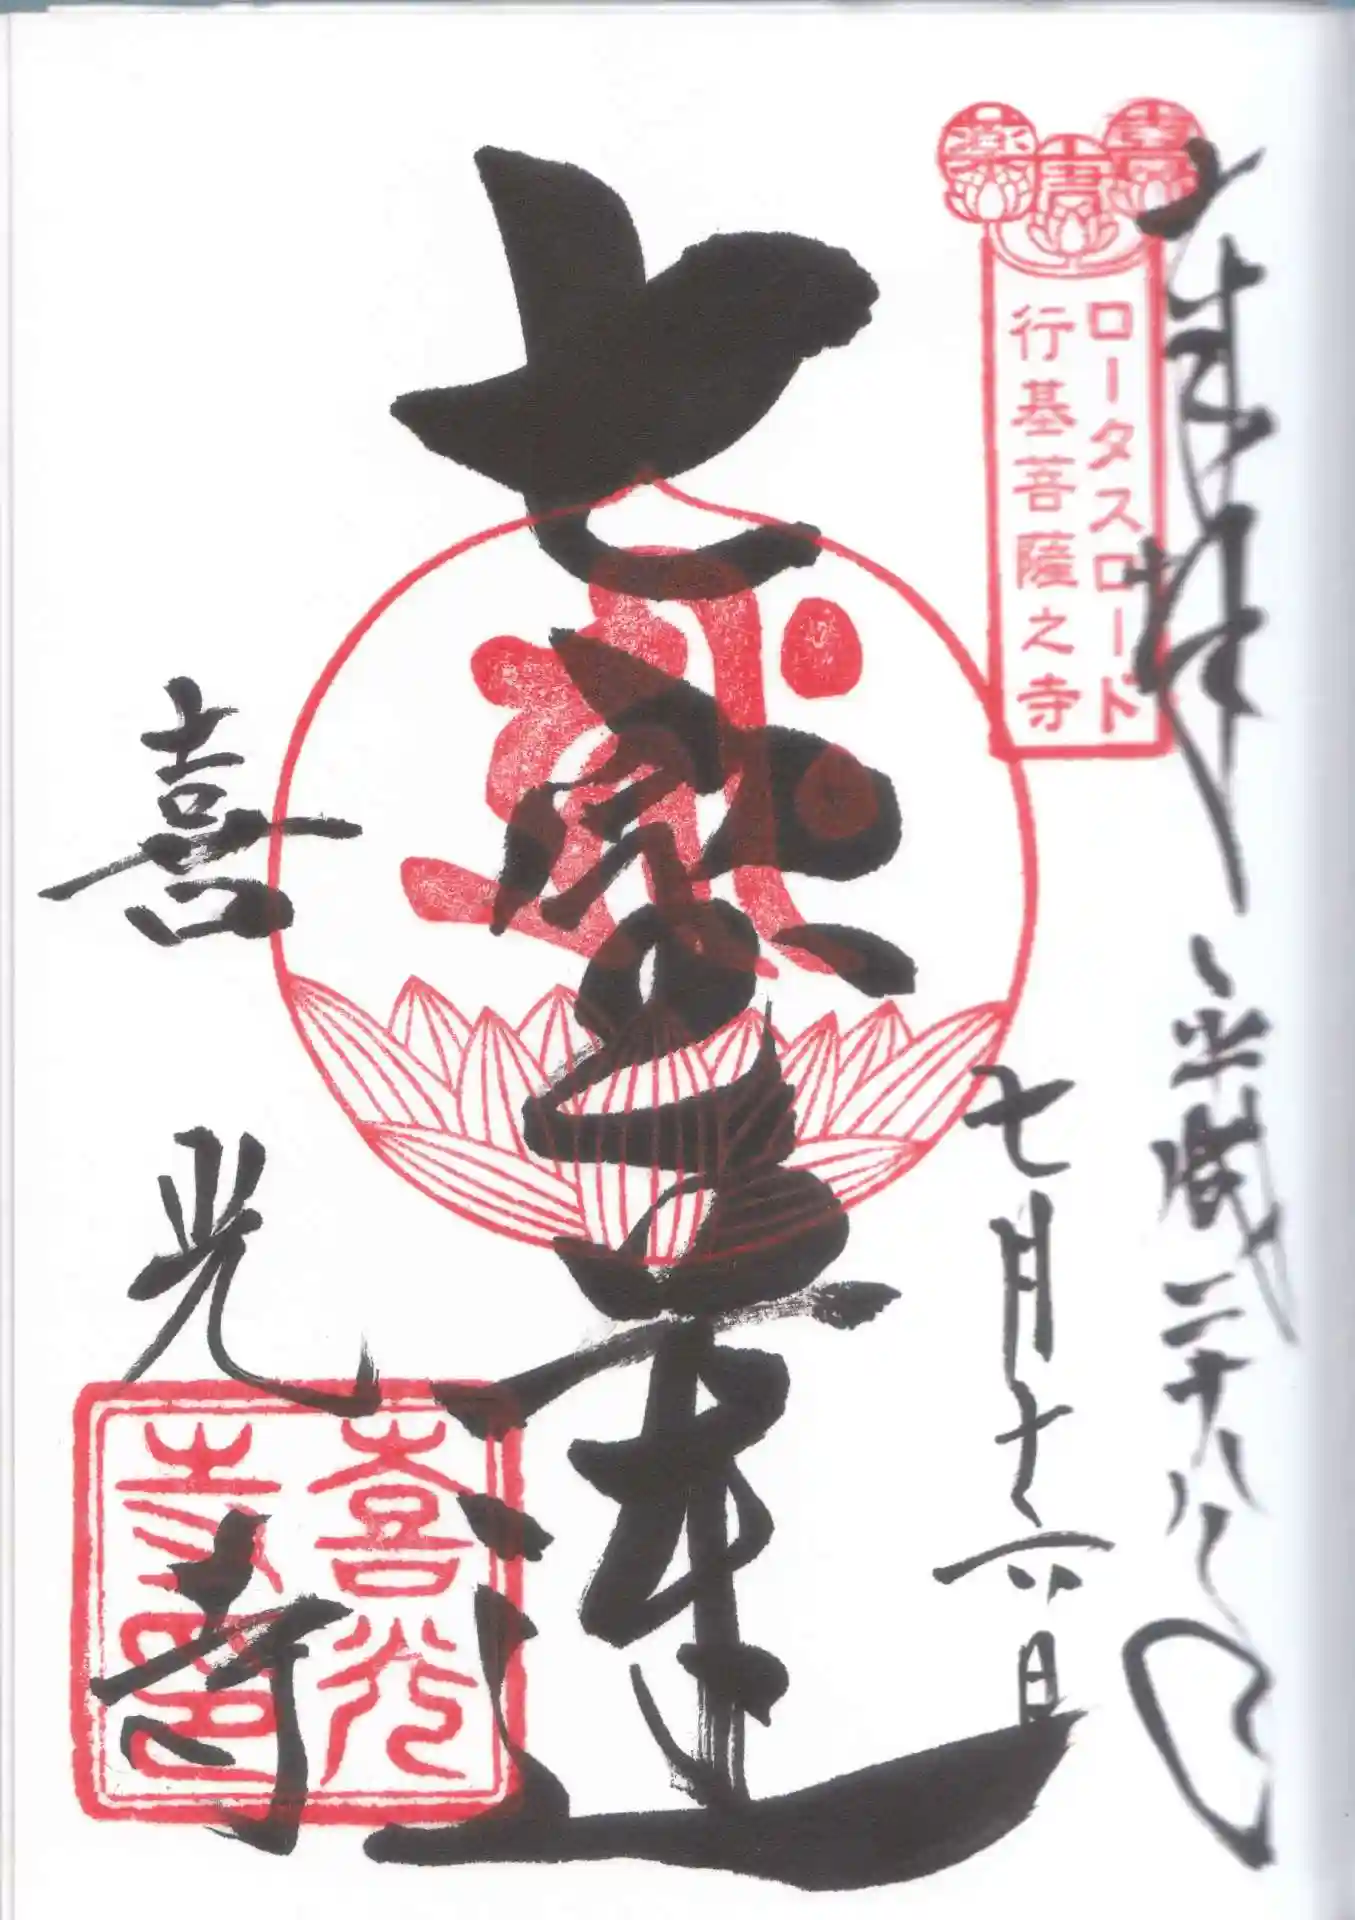 奉拝 平成二十八年
七月十六日
喜唐薬
ロータスロード
行基菩薩之寺
七寳蓮
喜光寺
喜光
寺印